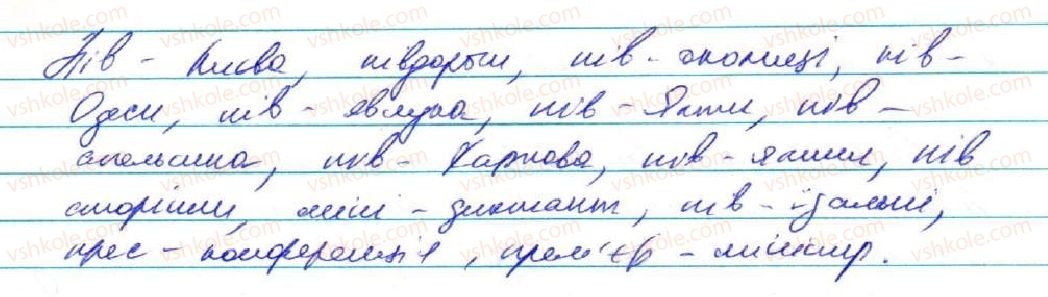 Пів - Києва, півдороги, пів - околиці, пів -
Одеси, пів - яблука, пів - Ялти, пів -
апельсина, пів - Харкова, пів - ящика, пів
сторінки, міні - диктант, пів - їдальні,
прес - конференція, прем'єр - міністр.